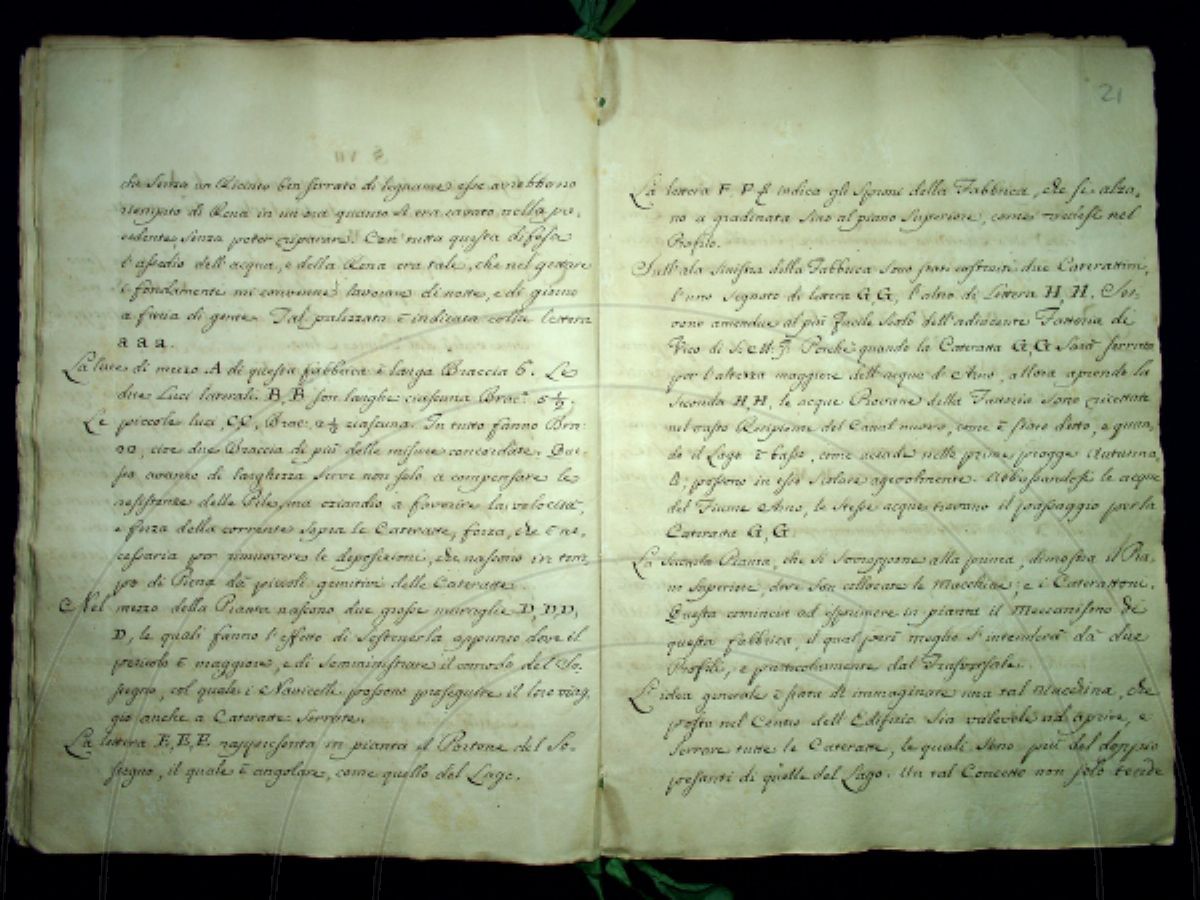 che senza un Recinto ben serrato di legname esse avrebbono
riempito di Rena in un'ora quanto si era cavato nella pre-
cedente, senza poter riparare. Con tutta questa difesa
l'assedio dell'acqua, e della Rena era tale, che nel gettare
i fondamente mi convenne lavorare di notte, e di giorno
a furia di gente. Tal palizzata è indicata colla lettera
a a a.
La luce di mezzo A di questa fabbrica è larga Braccia 6. Le
due Luci laterali B, B son larghe ciascuna Brac.ª 5 1/2.
Le piccole luci, CC, Brac: 2 1/2 ciascuna. In tutto fanno Bra:
cioè due Braccia di più delle misure concordate. Que-
sto avanzo di larghezza serve non solo a compensare le
resistenze delle Pile, ma eziandio a favorire la velocità,
e forza della corrente sopra le Cateratte, forza, che è ne-
cessaria per rimuovere le deposizioni, che nascono in tem-
po di Piena dà piccoli gemitivi delle Cateratte.
Nel mezzo della Pianta nascono due grosse muraglie D, D D,
D, le quali fanno l'effetto di sostenerla appunto dove il
pericolo è maggiore, e di somministrare il comodo del So-
stegno, col quale i Navicelli possono proseguire il loro viag-
gio anche a Cateratte serrate.
La lettera E, E, E rappresenta in pianta il Portone del So-
stegno, il quale è angolare, come quello del Lago.
21
La lettera F. F. F. indica gli Speroni della Fabbrica, che si alza-
no a gradinata sino al piano superiore, come vedesi nel
Profilo.
Sull'ala sinistra della Fabbrica sono stati costruiti due Caterattini,
l'uno segnato di lettera G G, l'altro di Lettera H, H. Ser-
vono amendue al più facile scolo dell'adiacente Fattoria di
Vico di S. M: I. Poiché quando la Cateratta G, G sarà serrata
per l'altezza maggiore dell'acque di Arno, allora aprendo la
seconda H, H, le acque Piovane della Fattoria sono ricettate
nel vasto Recipiente del Canal nuovo, come è stato detto, e quan-
do il Lago è basso, come accade nelle prime piogge Autunna-
li, possono in esso scolare agevolmente. Abbassandosi le acque
del Fiume Arno, le stesse acque trovano il passaggio per la
Cateratta G, G.
La seconda Pianta, che si sovrappone alla prima, dimostra il Pia-
no superiore, dove son collocate le Macchine, e i Caterattoni.
Questa comincia ad esprimere in pianta il Meccanismo di
questa fabbrica, il qual però meglio s'intenderà dà due
Profili, e particolarmente dal Trasversale.
L'idea generale è stata di immaginare una tal Macchina, che
posta nel Centro dell'Edifizio sia valevole ad aprire, e
serrare tutte le Cateratte, le quali sono più del doppio
pesanti di quelle del Lago. Un tal Concetto non solo tende